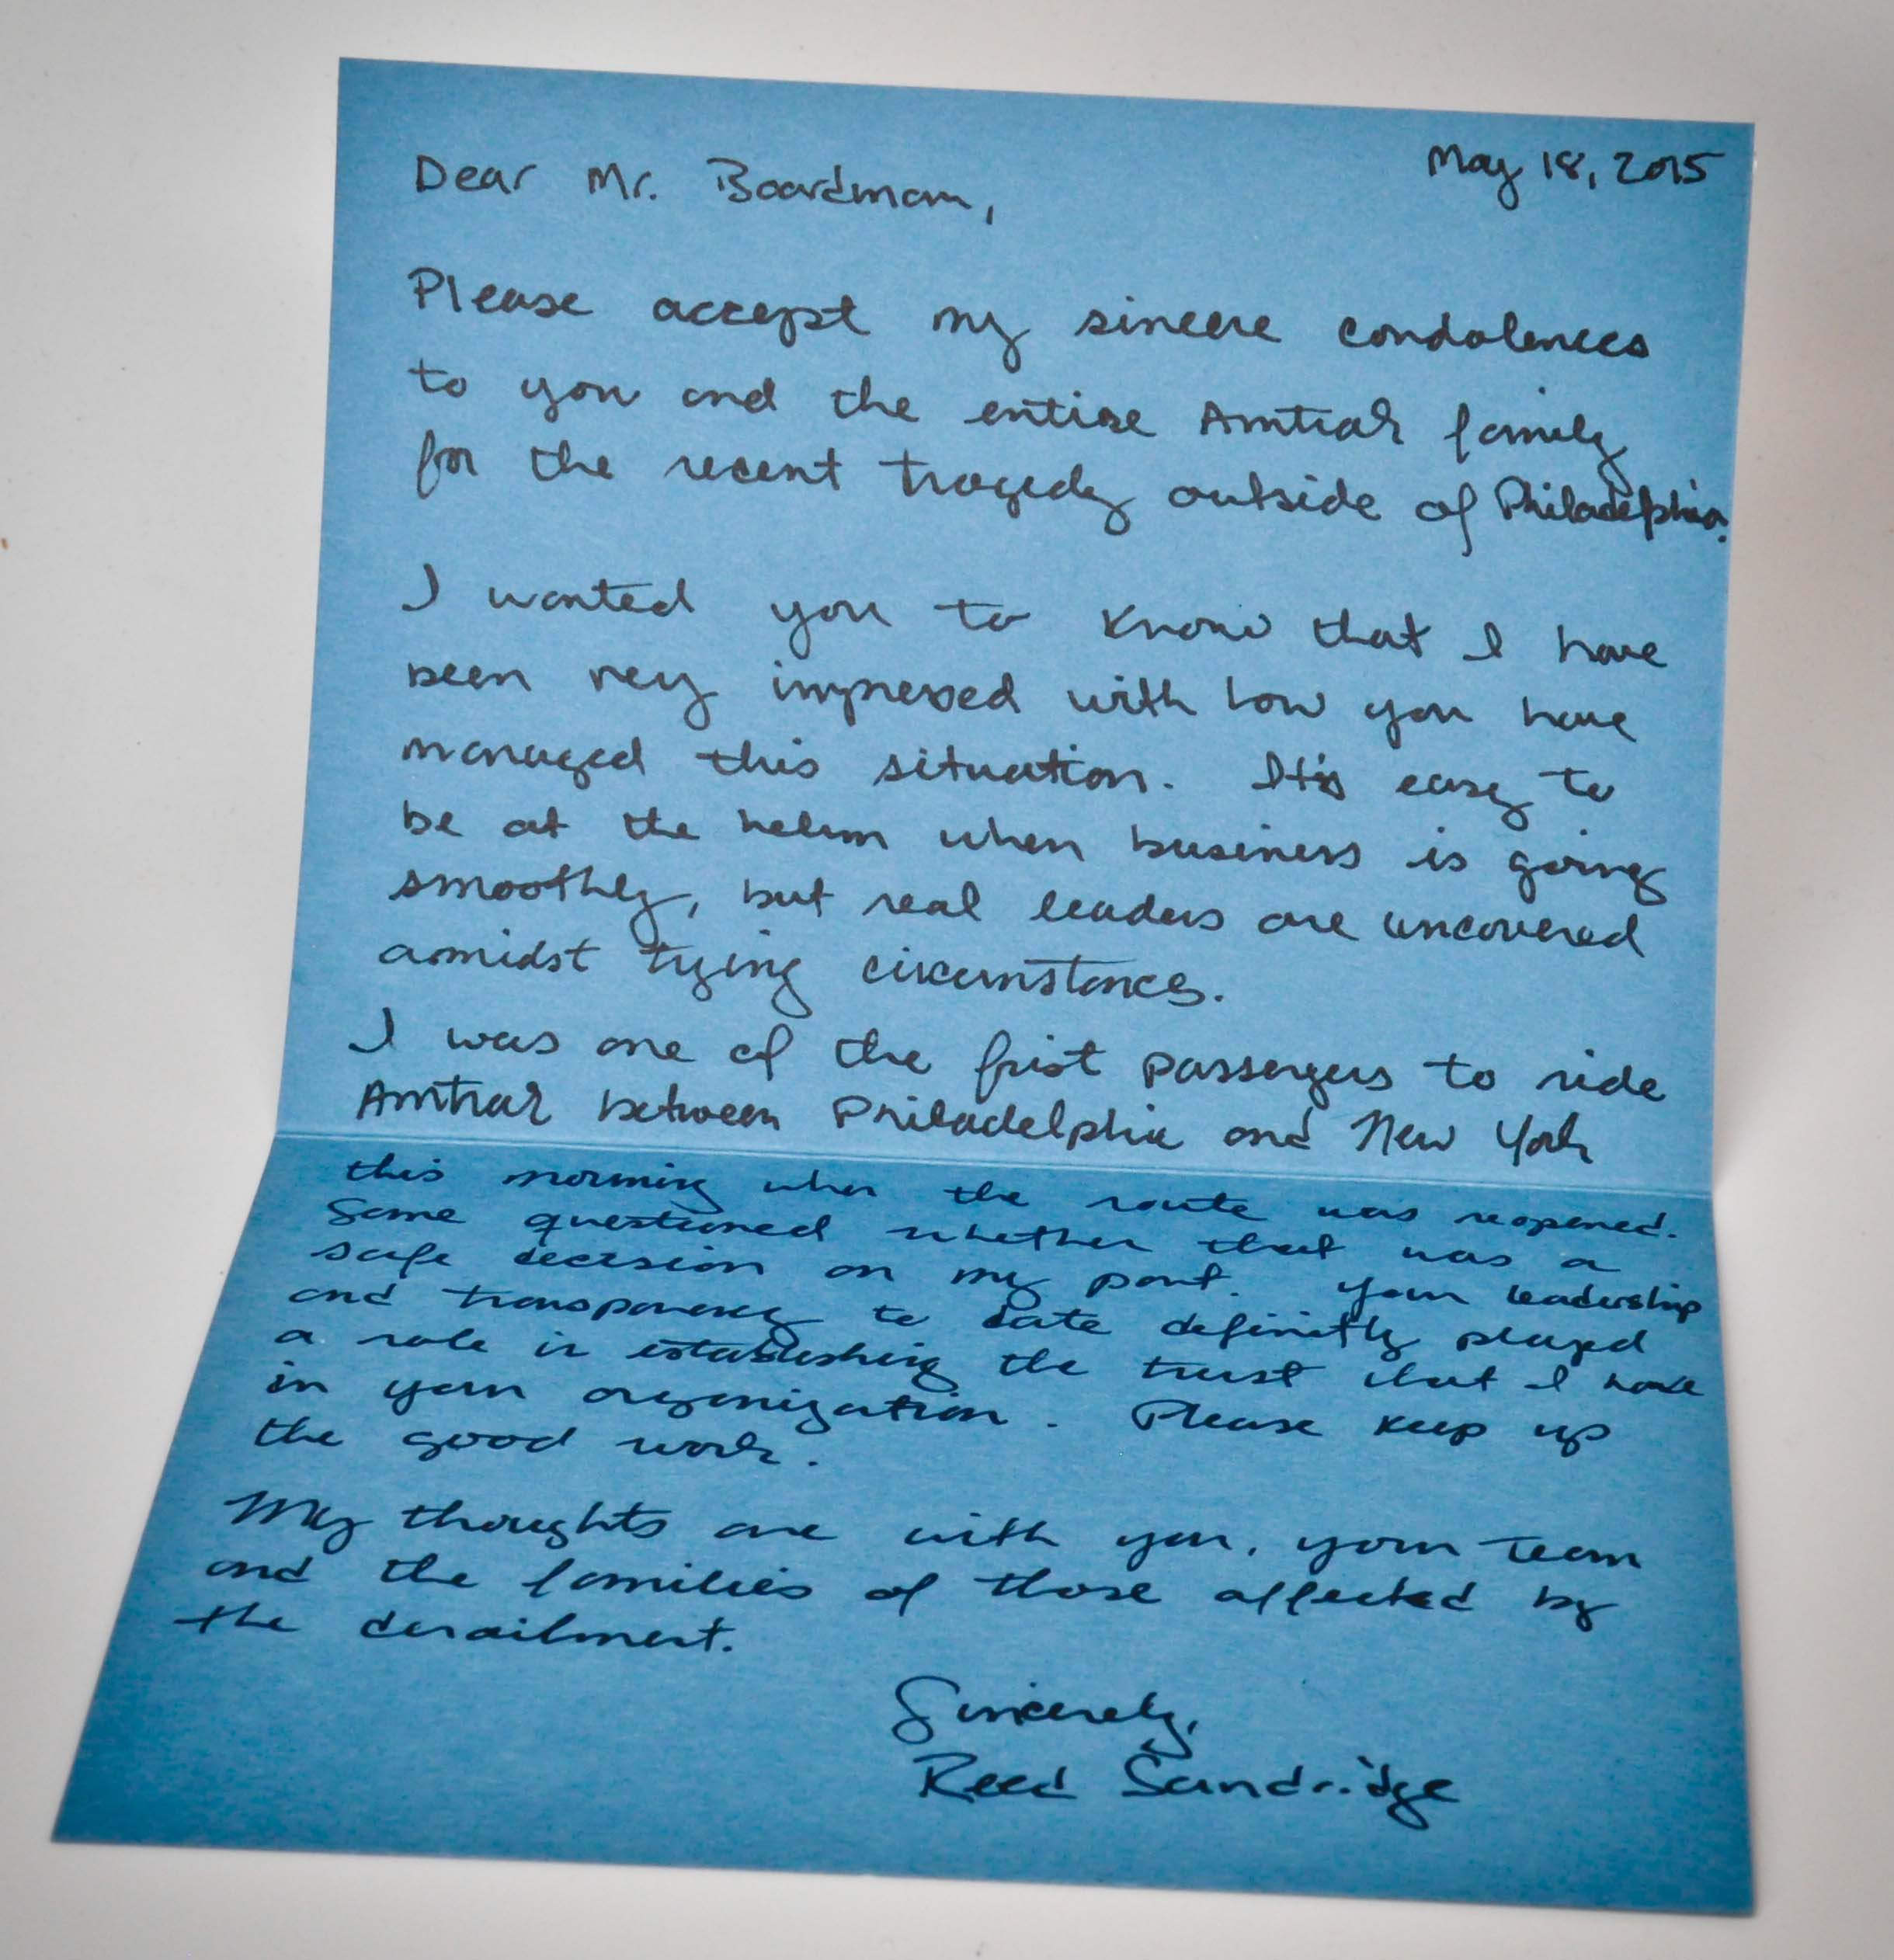 May 18, 2015
Dear Mr. Boardman,
Please accept my sincere condolences
to you and the entire Amtrak family
for the recent tragedy outside of Philadelphia.
I wanted you to know that I have
been very impressed with how you have
managed this situation. It's easy to
be at the helm when business is going
smoothly, but real leaders are uncovered
amidst trying circumstances.
I was one of the first passengers to ride
Amtrak between Philadelphia and New York
this morning when the route was reopened.
Some questioned whether that was a
safe decision on my part. Your leadership
and transparency to date definitly played
a role in establishing the trust that I have
in your organization. Please keep up
the good work.
My thoughts are with you, your team
and the families of those affected by
the derailment.
Sincerely,
Reed Sandridge